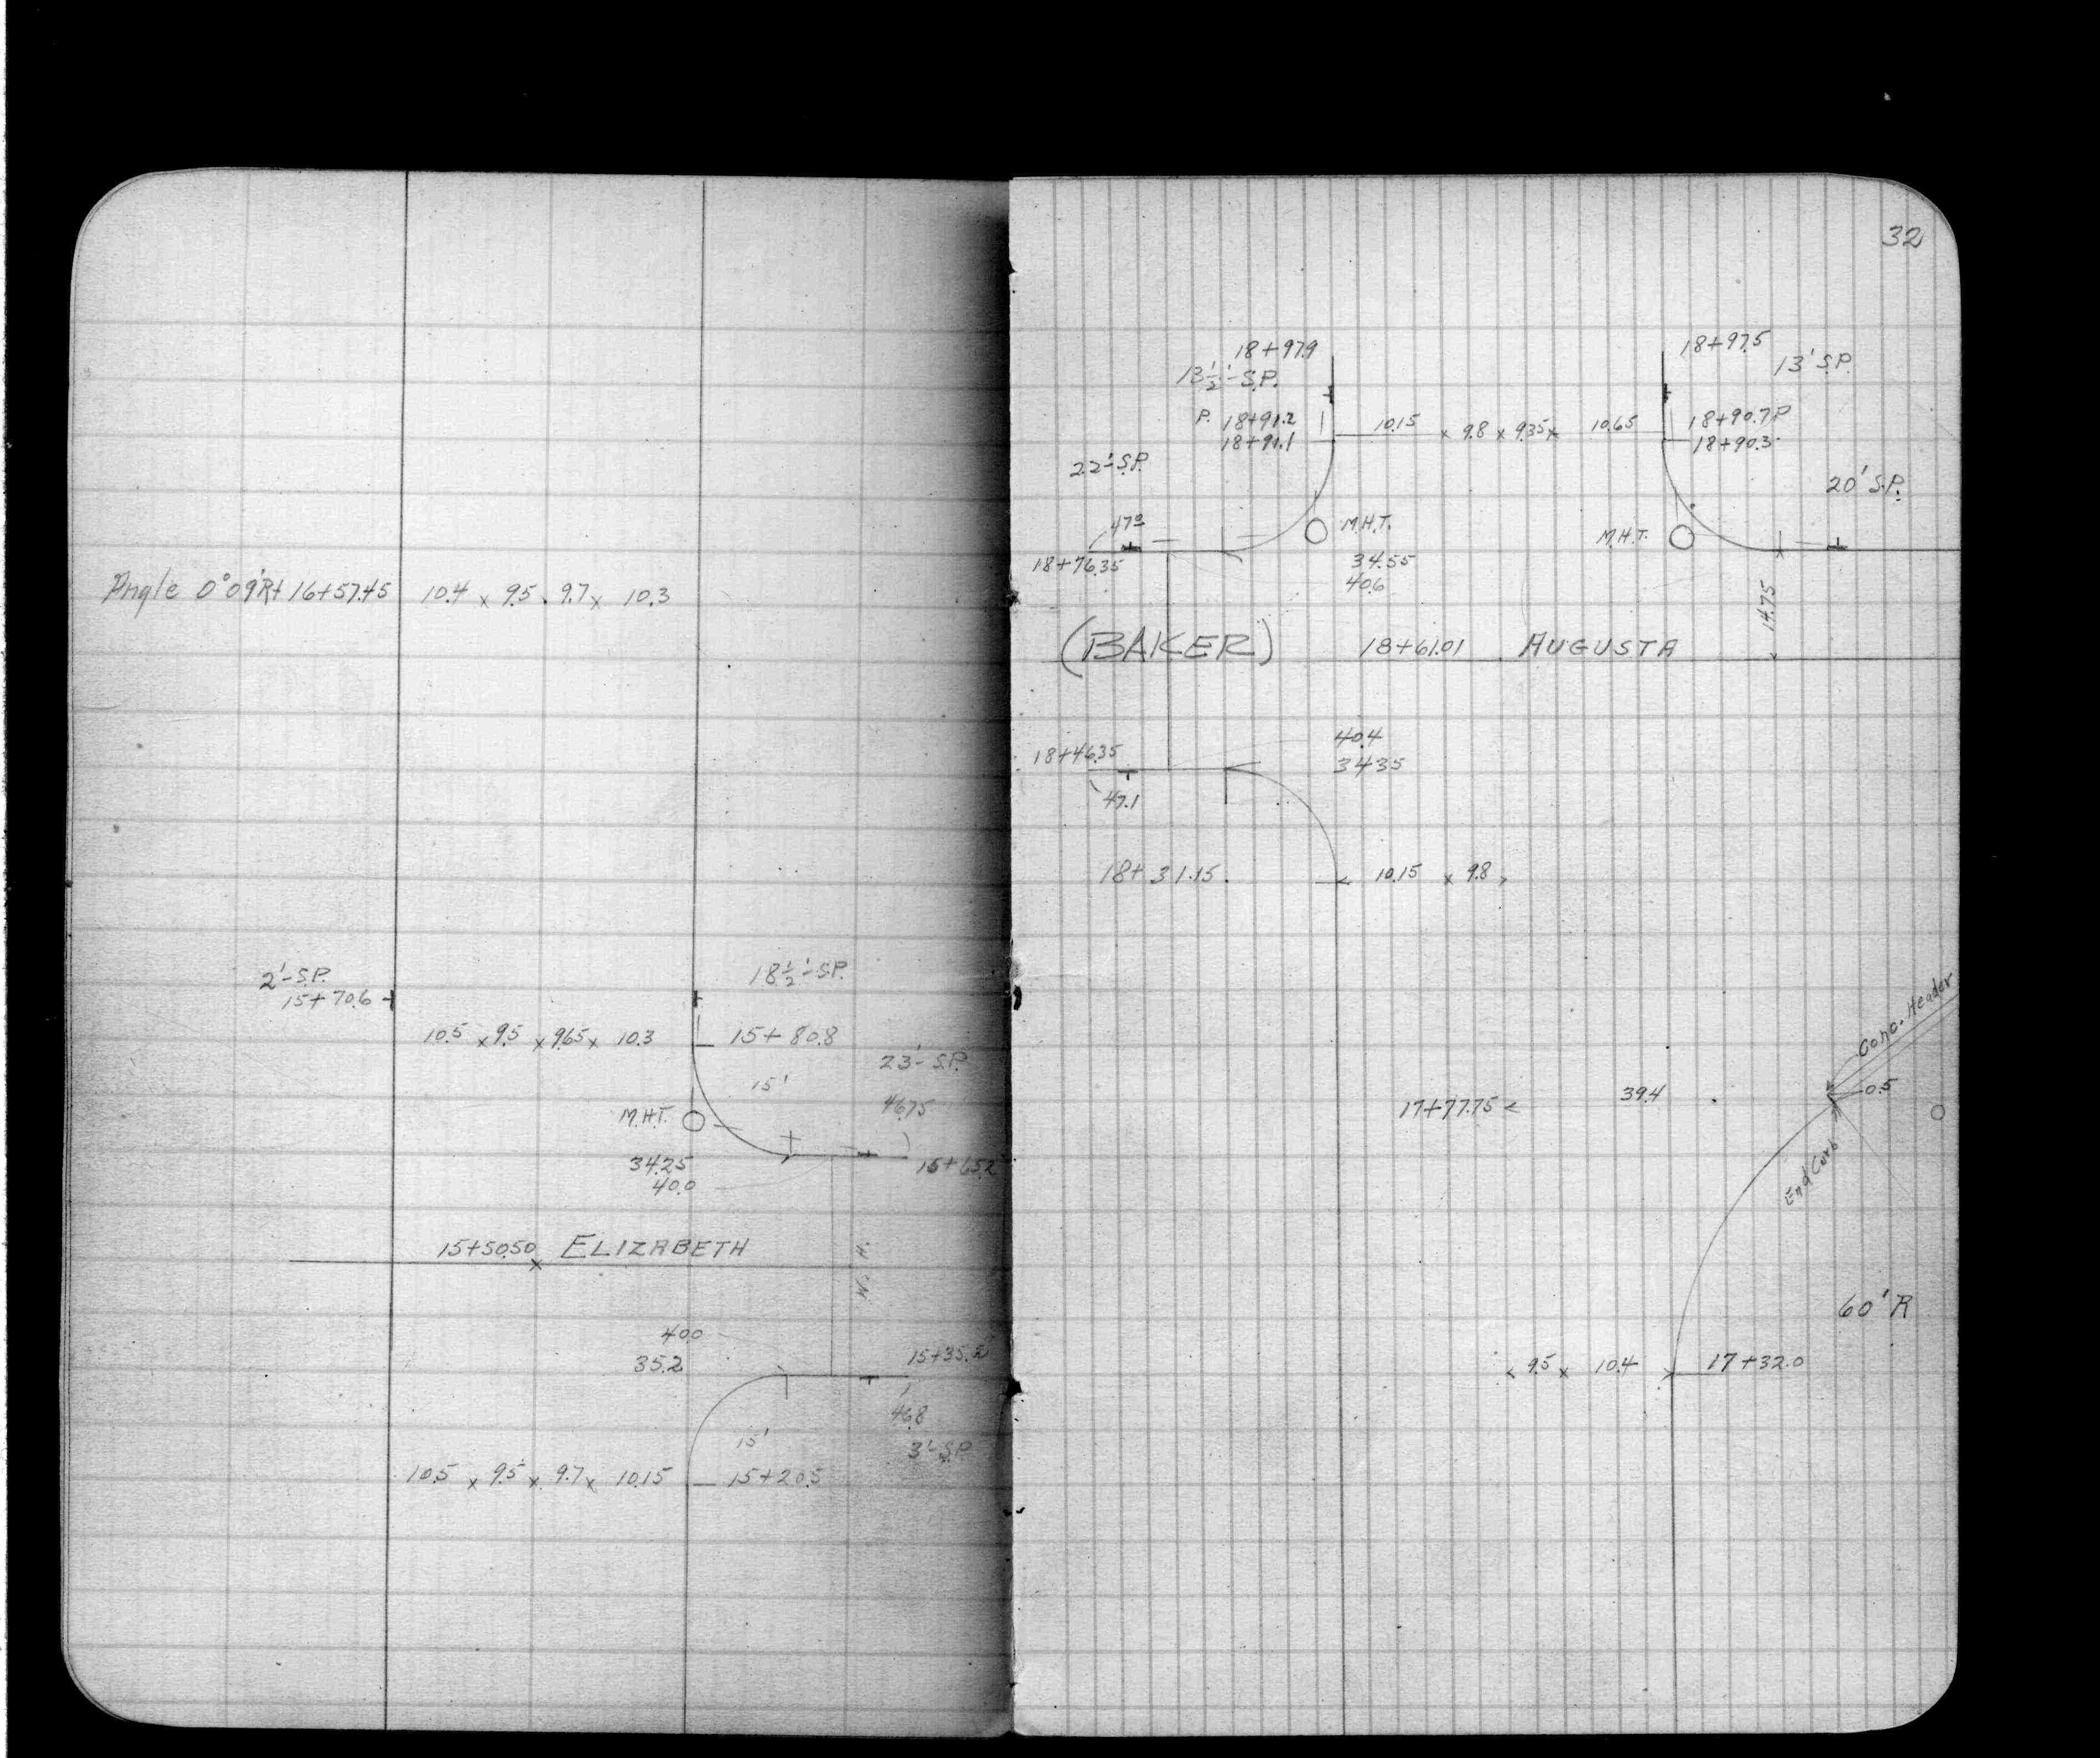 Angle 0°09'Rt 16+57.45 10.4 x 9.5 . 9.7 x 10.3
2'-S.P.
15+70.6
18½'-S.P.
10.5 x 9.5 x 9.65 x 10.3
15+80.8
23'-S.P.
15'
46.75
M.H.T.
34.25
40.0
15+65.2
15+50.50 ELIZABETH
W. H.
40.0
35.2
15+35.2
46.8
3'-S.P.
15'
10.5 x 9.5 x 9.7 x 10.15
15+20.5
32
18+97.9
13½'-S.P.
18+97.5
13' S.P.
P. 18+91.2
18+91.1
10.15 x 9.8 x 9.35 x 10.65
18+90.7 P
18+90.3
22'-S.P.
20' S.P.
47.0
M.H.T.
M.H.T.
18+76.35
34.55
40.6
14.75
(BAKER) 18+61.01 AUGUSTA
18+46.35
40.4
34.35
47.1
18+31.15
10.15 x 9.8
Conc. Header
17+77.75
39.4
0.5
End Curb
60' R
9.5 x 10.4
17+32.0